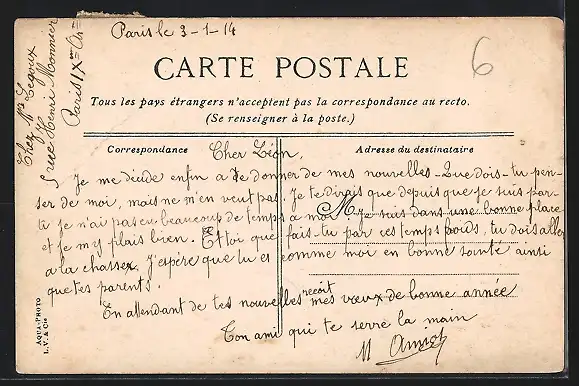 Paris le 3-1-14
6
Chez Mrs Legoux
5 rue Henri Monnier
Paris IXme Art
CARTE POSTALE
Tous les pays étrangers n'acceptent pas la correspondance au recto.
(Se renseigner à la poste.)
Correspondance
Adresse du destinataire
Cher Léon,
Je me décide enfin a te donner de mes nouvelles - Que dois-tu pen-
ser de moi, mais ne m'en veut pas. Je te dirais que depuis que je suis par-
ti je n'ai pas eu beaucoup de temps a moi. Je suis dans une bonne place
et je m'y plais bien. Et toi que fais-tu par ces temps froids, tu dois aller
a la chasse. J'espère que tu es comme moi en bonne santé ainsi
que tes parents.
En attendant de tes nouvelles reçoit mes vœux de bonne année
Ton ami qui te serre la main
M
AQUA-PHOTO
L.V. & Cie